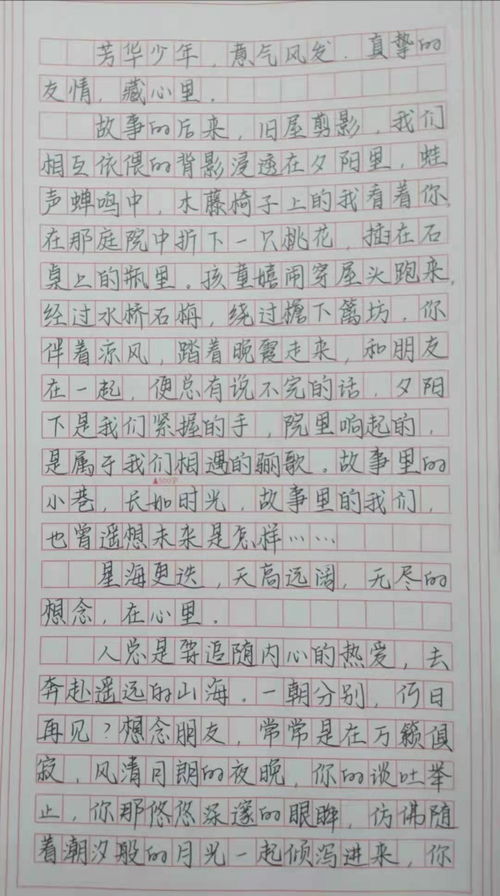 芳华少年，意气风发．真挚的
友情，藏心里．
故事的后来，旧屋剪影，我们
相互依偎的背影浸透在夕阳里，蛙
声蝉鸣中，木藤椅子上的我看着你
在那庭院中折下一只桃花，插在石
桌上的瓶里．孩童嬉闹穿屋头跑来，
经过水桥石梅，绕过檐下篱坊．你
伴着凉风，踏着晚霞走来，和朋友
在一起，便总有说不完的话．夕阳
下是我们紧握的手，院里响起的，
是属于我们相遇的骊歌．故事里的
▲500字
小巷，长如时光，故事里的我们，
也曾遥想未来是怎样……
星海更迭，天高远阔，无尽的
想念，在心里．
人总是要追随内心的热爱，去
奔赴遥远的山海．一朝分别，何日
再见？想念朋友，常常是在万籁俱
寂，风清月朗的夜晚，你的谈吐举
止，你那悠悠深邃的眼眸，仿佛随
着潮汐般的月光一起倾泻进来，你